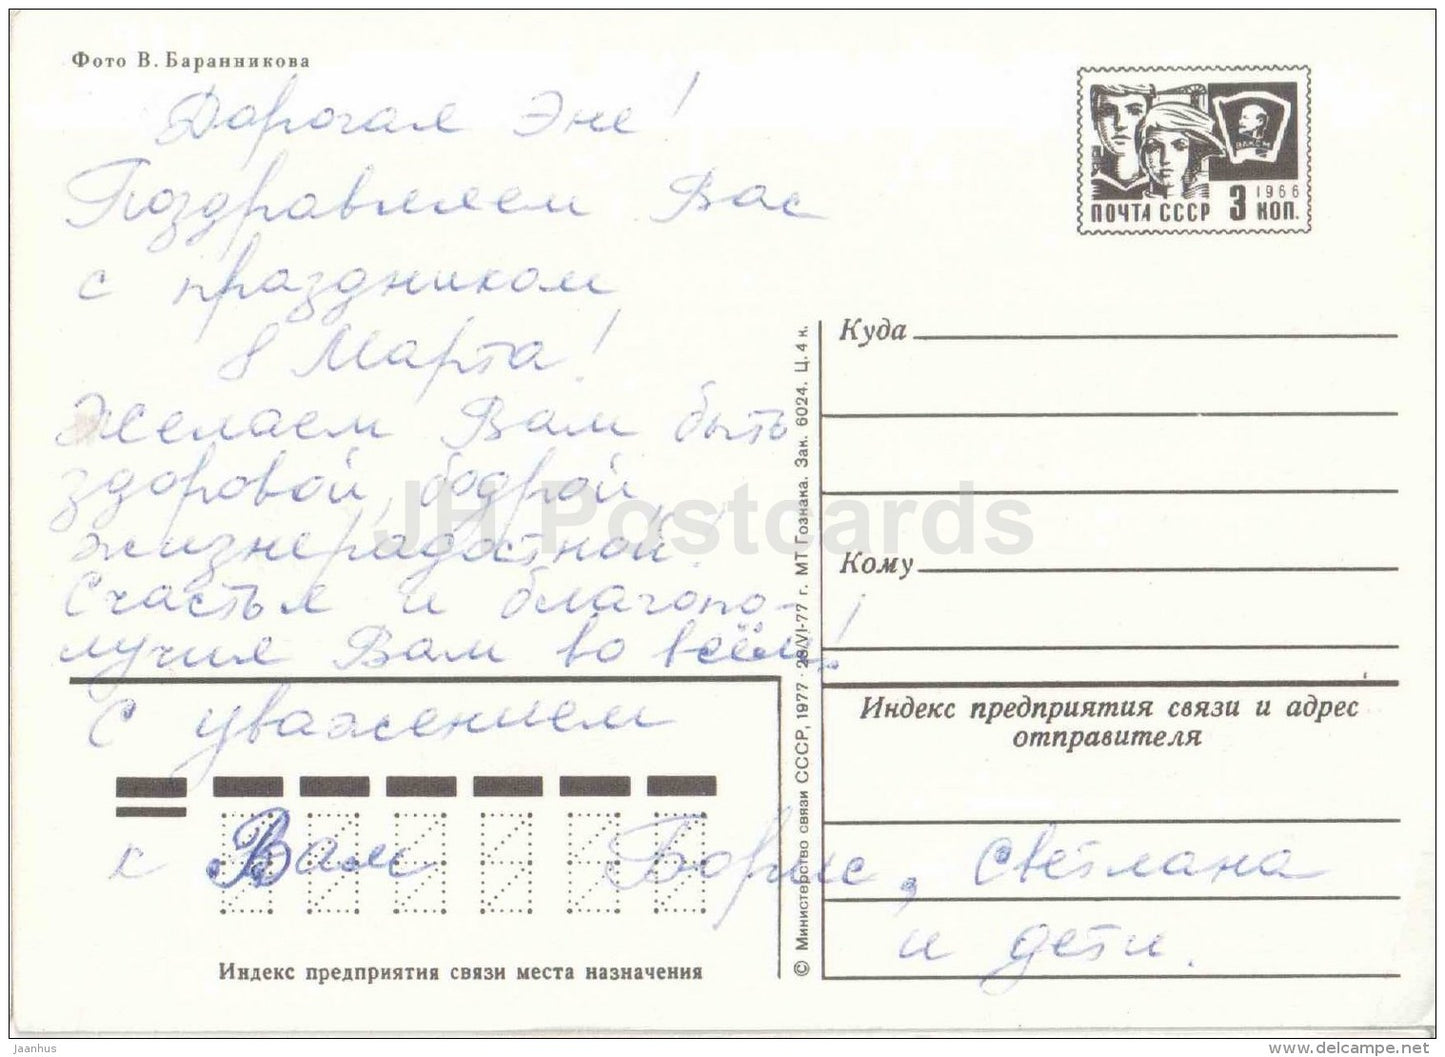 Фото В. Баранникова
Дорогая Эне!
Поздравляем Вас
с праздником
8 Марта!
Желаем Вам быть
здоровой, бодрой,
жизнерадостной!
Счастья и благопо-
лучия Вам во всём!
С уважением
к Вам Борис, Светлана
и дети.
ВЛКСМ
1966
ПОЧТА СССР 3 КОП.
Куда
Кому
Индекс предприятия связи и адрес
отправителя
Индекс предприятия связи места назначения
© Министерство связи СССР, 1977 · 28/VI-77 г. МТ Гознака. Зак. 6024. Ц. 4 к.
JH Postcards
Jaanhus
www.delcampe.net